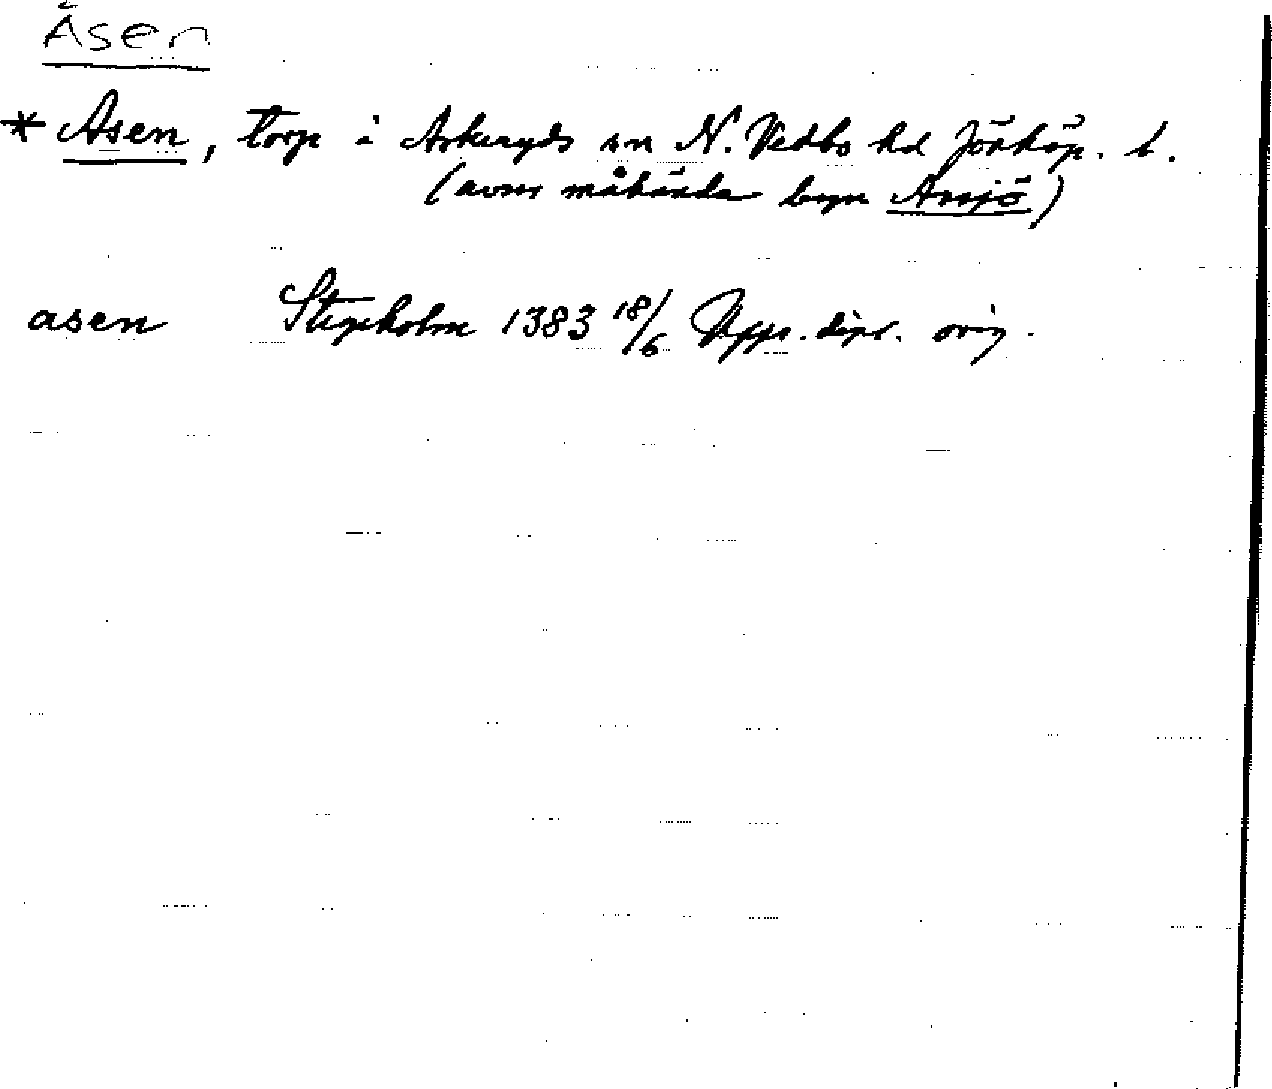 Åsen
* Asen, torp i Askeryds sn N. Vedbo hd Jönköp. l.
(avser måhända byn Ansjö)
asen Stegeholm 1383 18/6 Upps. dipl. orig.